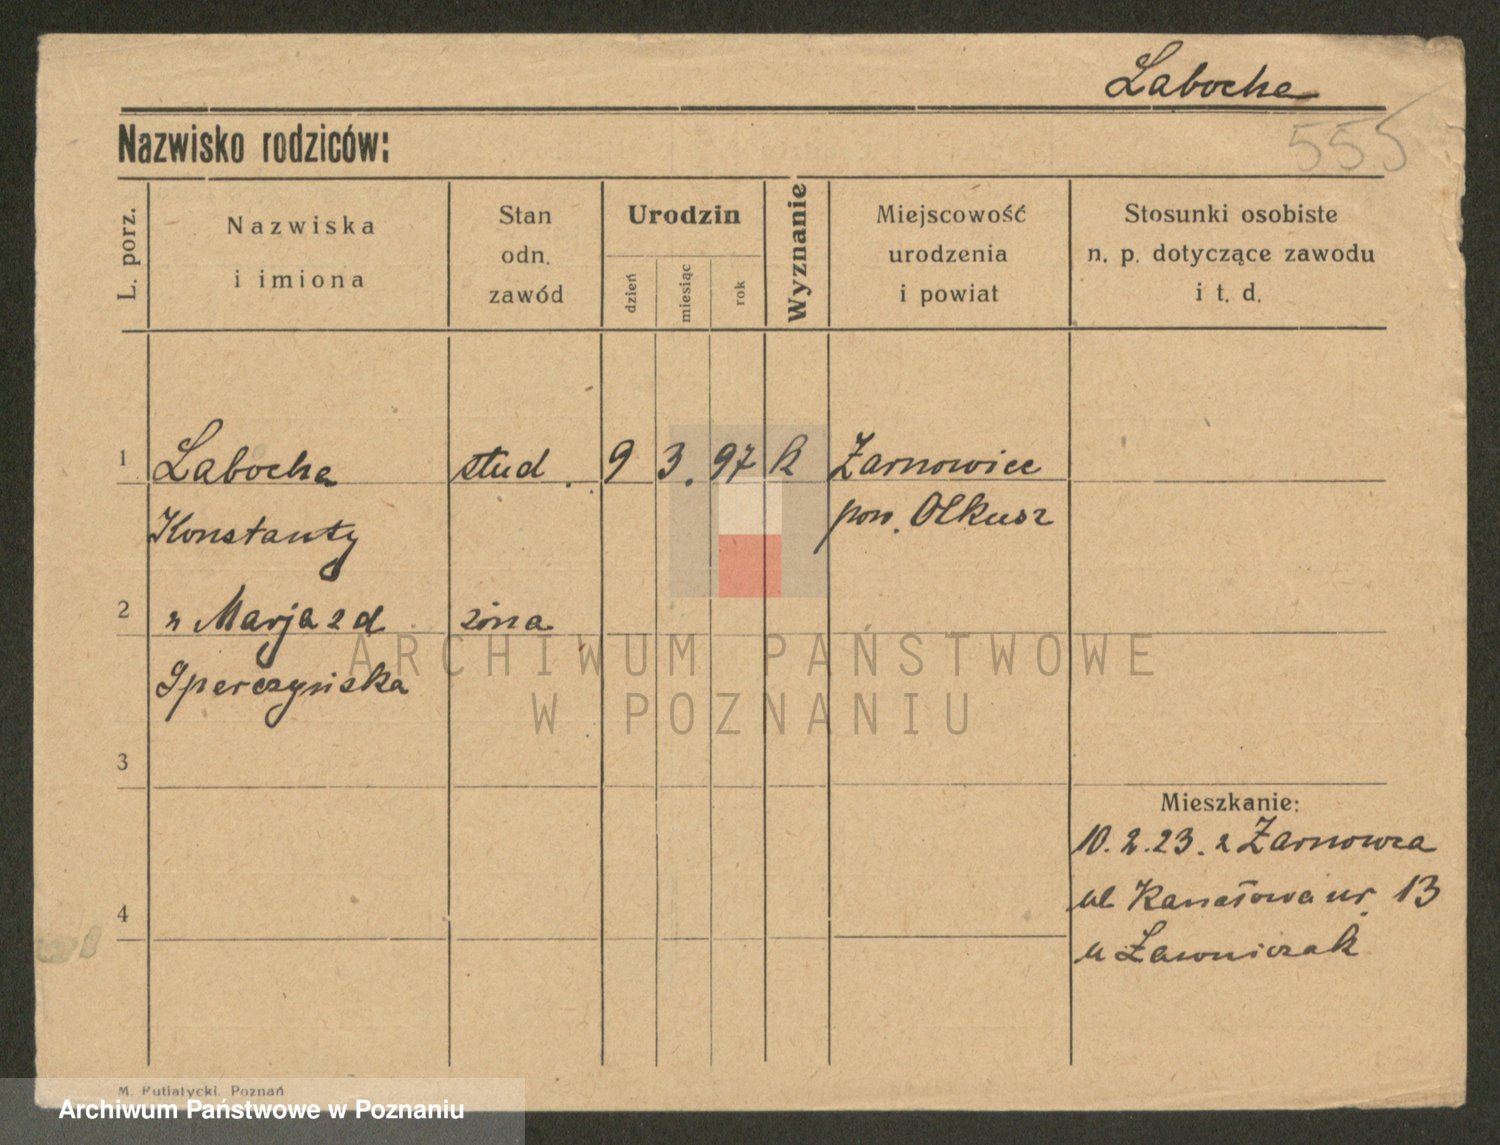 Labocha
555
Nazwisko rodziców:
L. porz.
Nazwiska
i imiona
Stan
odn.
zawód
Urodzin
dzień
miesiąc
rok
Wyznanie
Miejscowość
urodzenia
i powiat
Stosunki osobiste
n. p. dotyczące zawodu
i t. d.
1 Labocha stud. 9 3. 97 k Żarnowiec
Konstanty pow. Olkusz
2 Marja zd żona
3
Mieszkanie:
10.2.23. z Żarnowca
ul Kanałowa nr. 13
4
u Ławniczak
M. Putiatycki, Poznań
ARCHIWUM PAŃSTWOWE
W POZNANIU
Archiwum Państwowe w Poznaniu